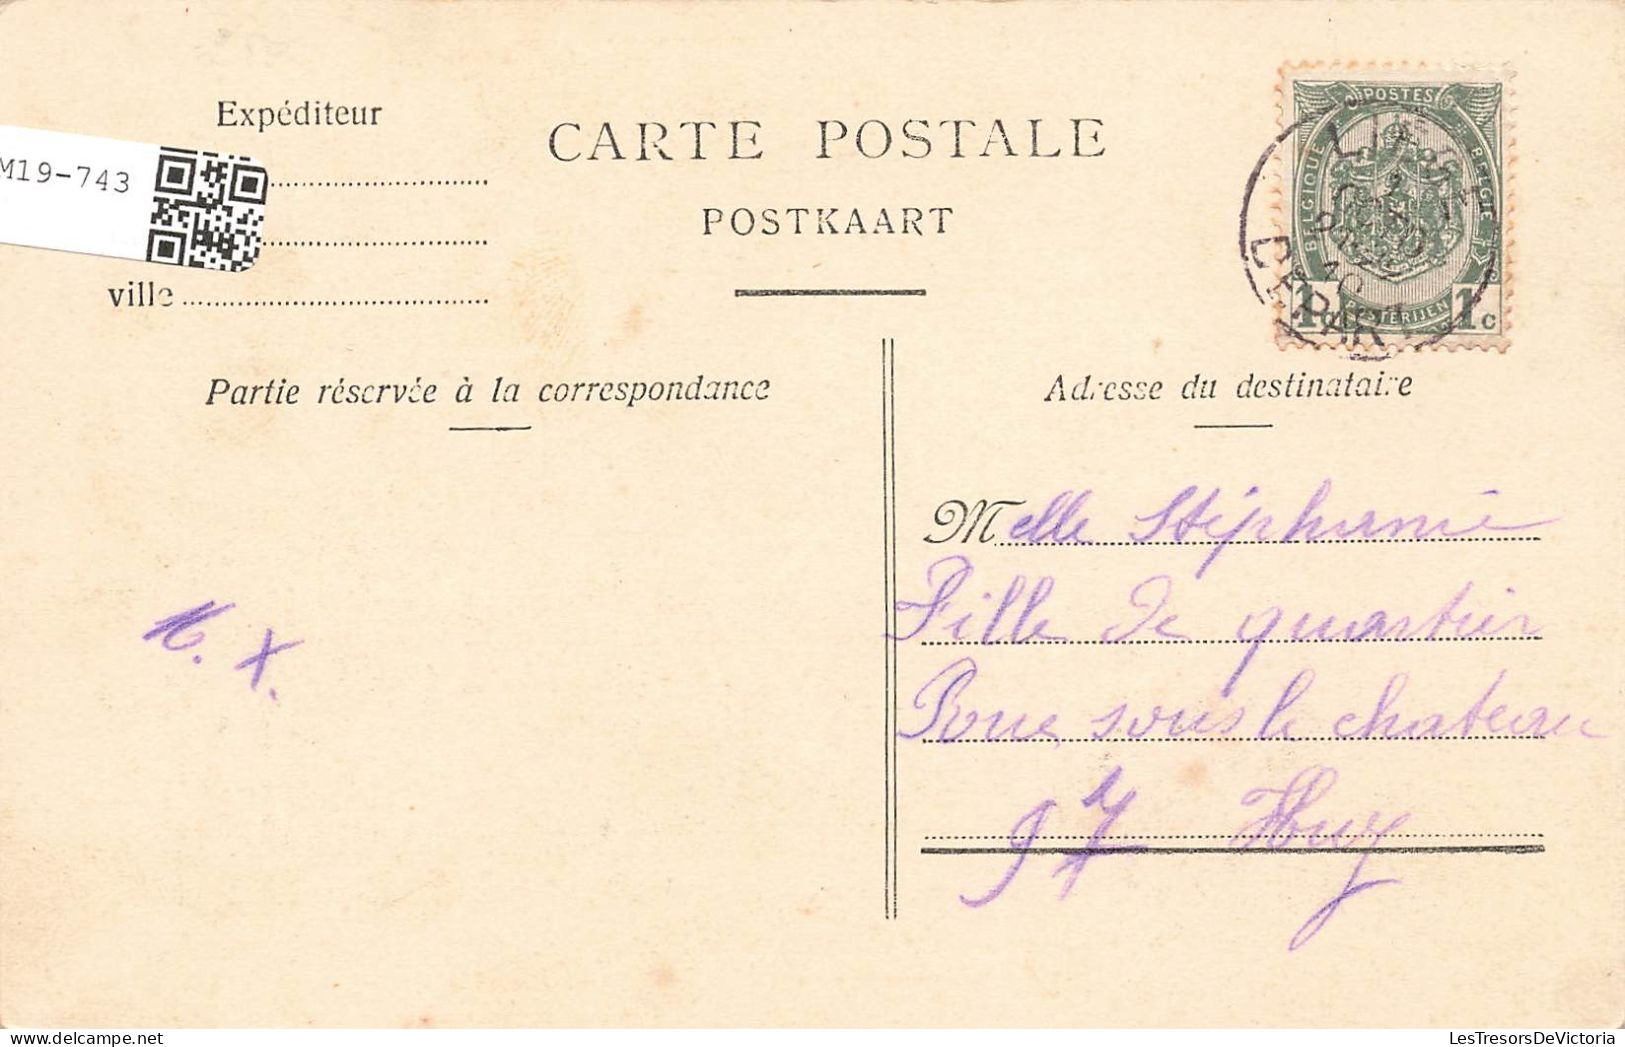 Expéditeur
M19-743
ville
CARTE POSTALE
POSTKAART
POSTES
BELGIQUE
BELGIE
POSTERIJEN
1c 1c
DEPART
Partie réservée à la correspondance
Adresse du destinataire
M. X.
Melle Stéphanie
Fille de quartier
Rue sous le chateau
97 Huy
LesTresorsDeVictoria